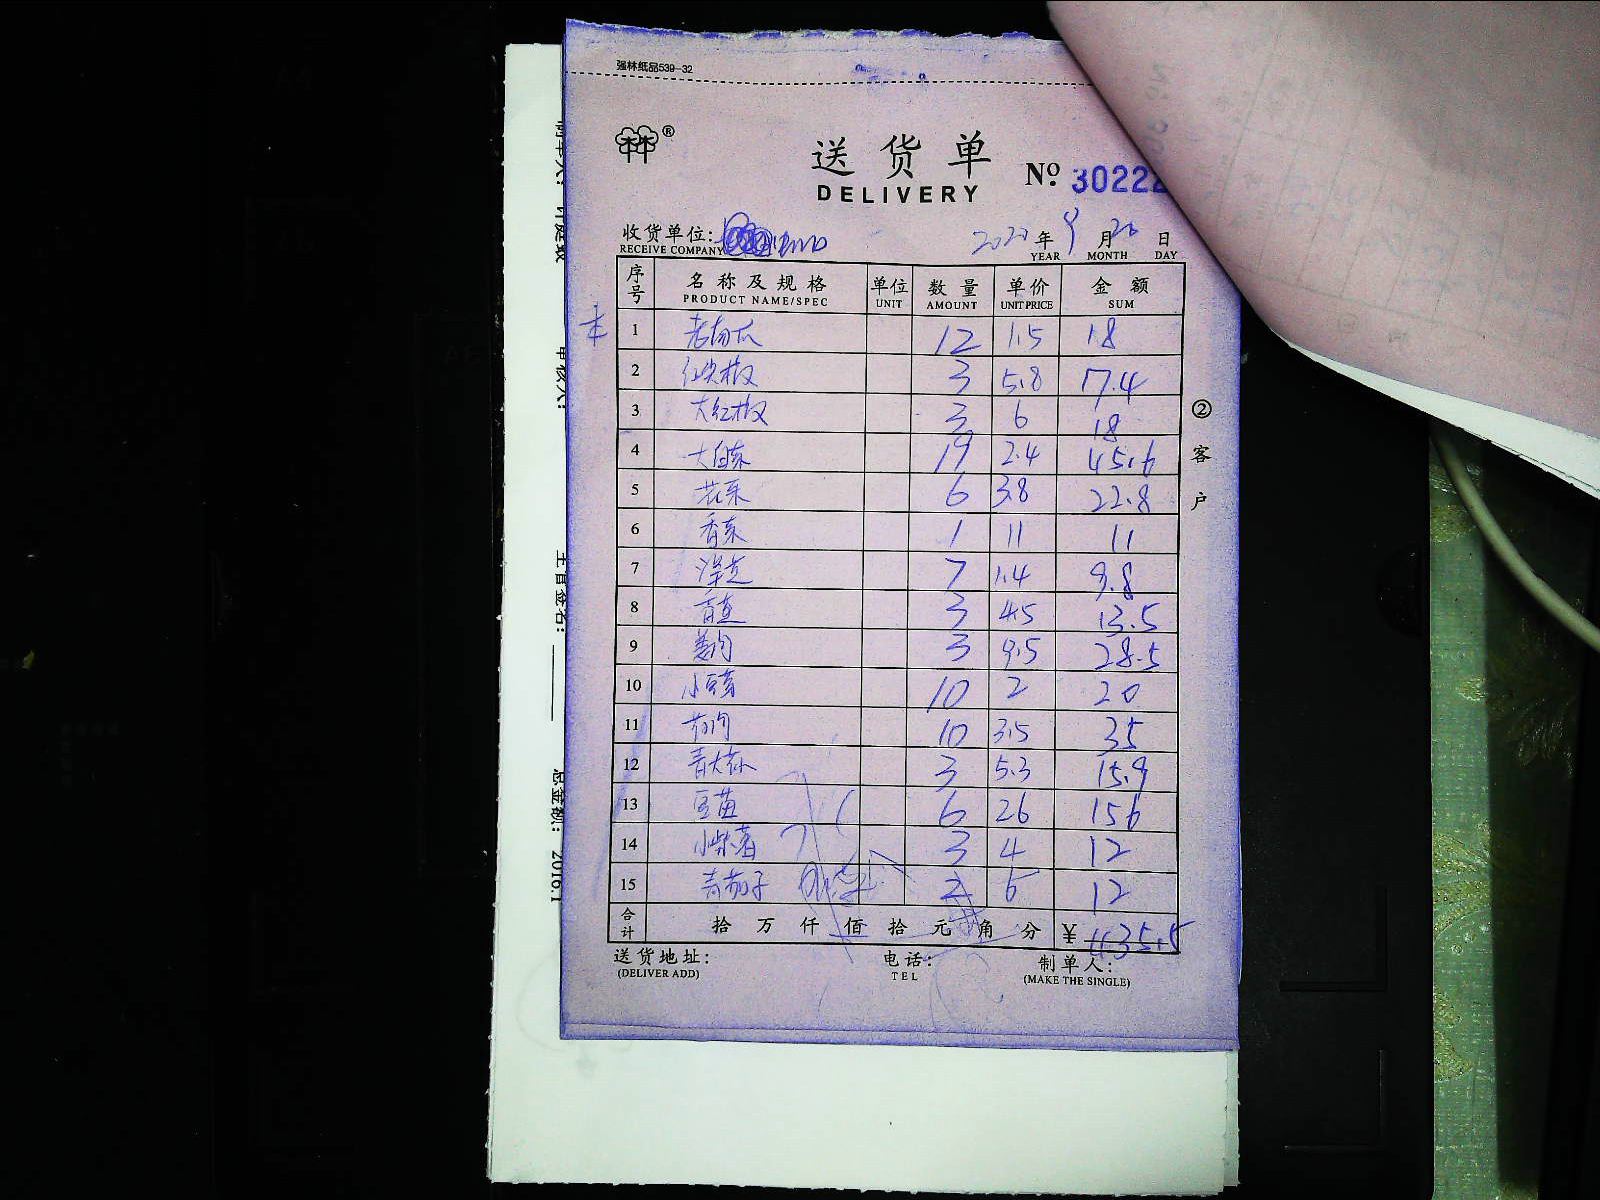 强林纸品539-32
送货单
DELIVERY
№ 30222
收货单位:
RECEIVE COMPANY
2020 年 9 月 20 日
YEAR MONTH DAY
序号 名称及规格 单位 数量 单价 金额
PRODUCT NAME/SPEC UNIT AMOUNT UNIT PRICE SUM
1 老南瓜 12 1.5 18
2 红尖椒 3 5.8 17.4
3 大红椒 3 6 18
4 大白菜 19 2.4 45.6
5 花菜 6 3.8 22.8
6 香菜 1 11 11
7 洋芋 7 1.4 9.8
8 3 4.5 13.5
9 3 9.5 28.5
10 小豆芽 10 2 20
11 10 3.5 35
12 3 5.3 15.9
13 豆苗 6 26 156
14 3 4 12
15 青茄子 2 6 12
合计 拾 万 仟 佰 拾 元 角 分 ¥ 435.5
送货地址: 电话: 制单人:
(DELIVER ADD) TEL (MAKE THE SINGLE)
② 客户
主管签名:
总金额:
2016.1